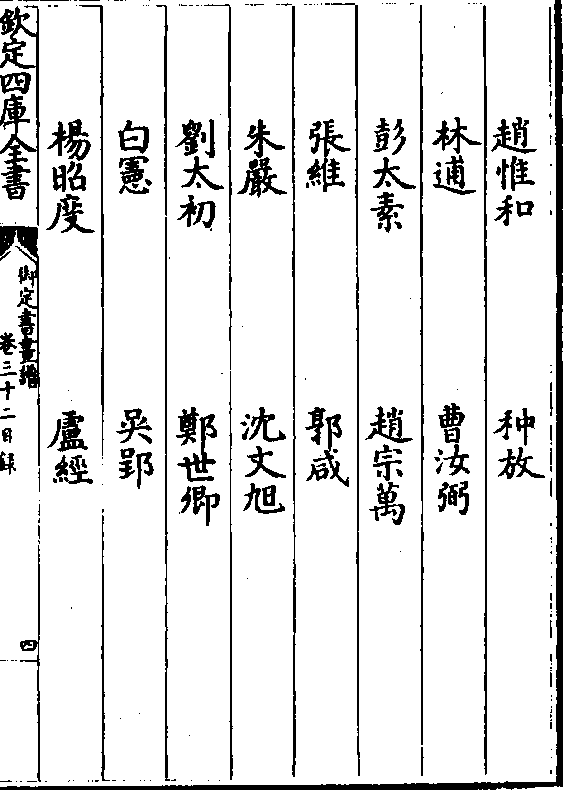 趙惟和 种放
林逋 曹汝弼
彭太素 趙宗萬
張維 郭咸
朱嚴 沈文旭
劉太初 鄭世卿
白憲 吳郢
楊昭度 盧經
欽定四庫全書
御定書畫譜
卷三十二目録
四